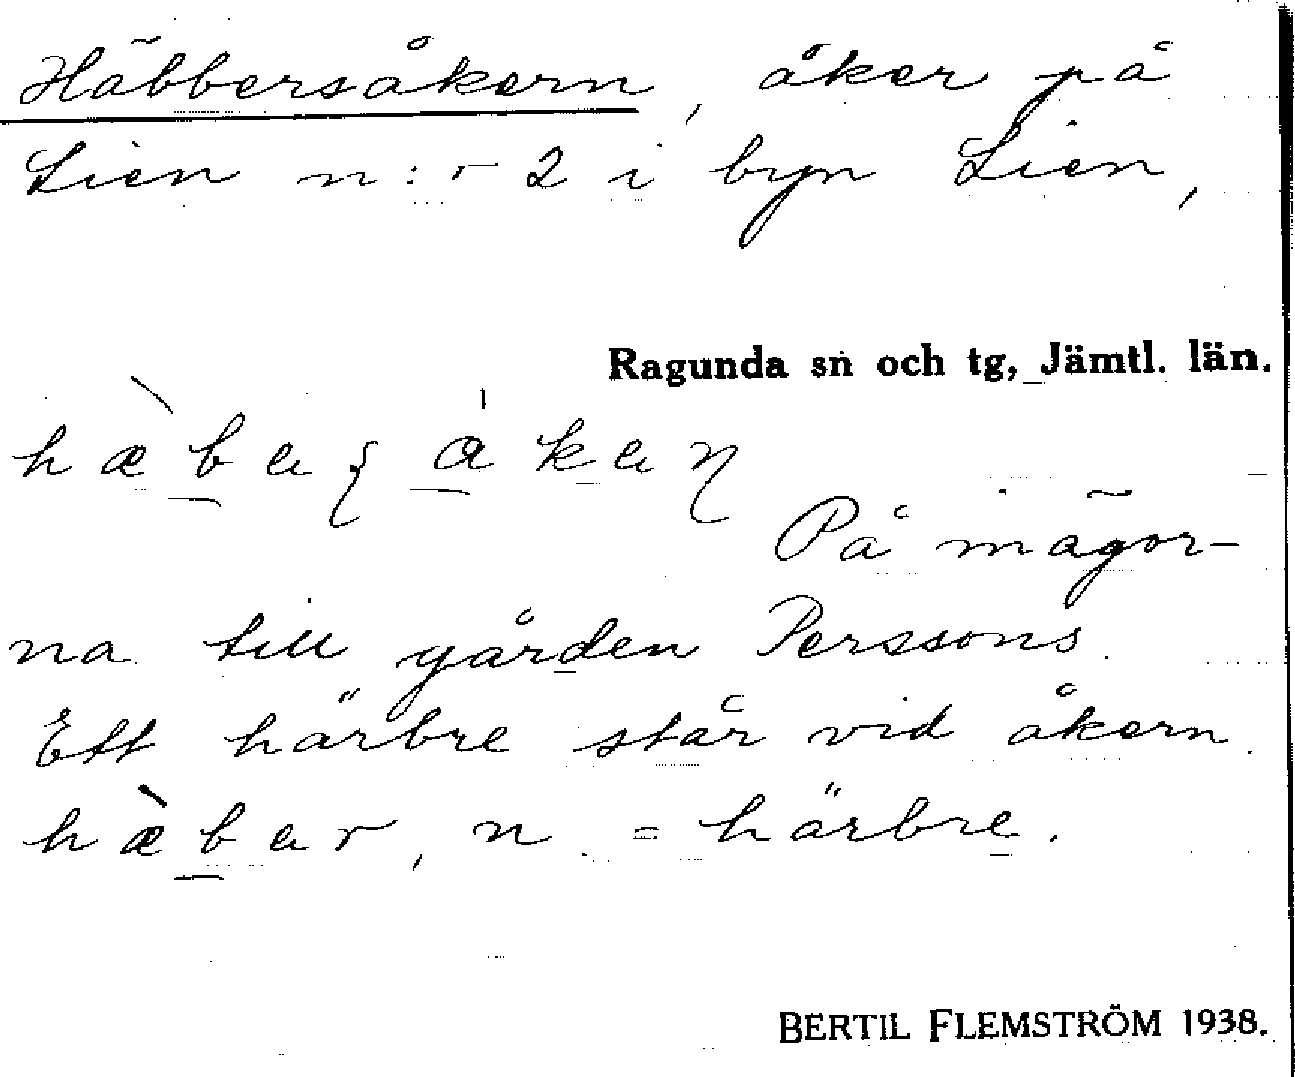 Häbbersåkern, åker på
Lien n:r 2 i byn Lien,
Ragunda sn och tg, Jämtl. län.
På inägor-
na till gården Perssons.
Ett härbre står vid åkern.
hæ̀bar, n. = härbre.
BERTIL FLEMSTRÖM 1938.